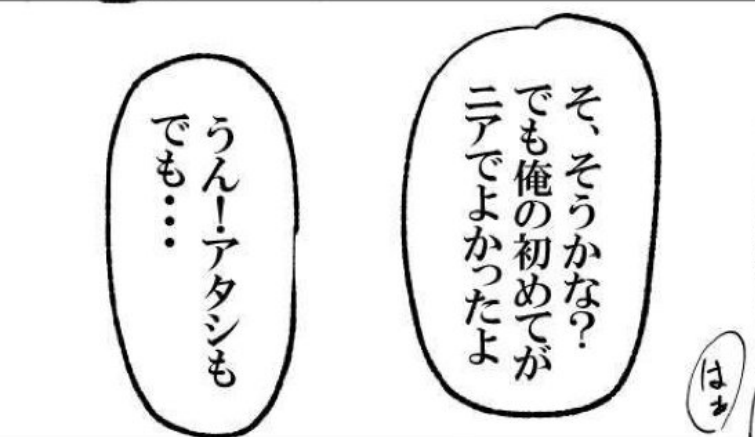 そ、そうかな？
でも俺の初めてが
ニアでよかったよ
はぁ
うん！アタシも
でも・・・